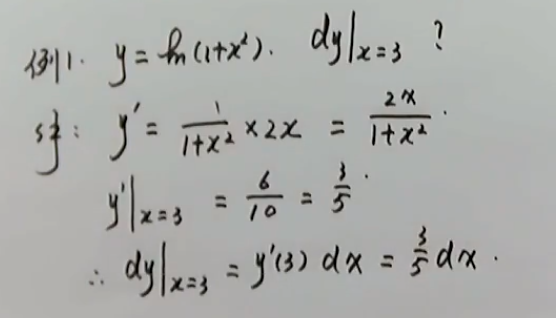 例1. y = ln(1+x²). dy|ₓ₌₃ ?
解: y' = 1/(1+x²) × 2x = 2x/(1+x²).
y'|ₓ₌₃ = 6/10 = 3/5.
∴ dy|ₓ₌₃ = y'(3) dx = 3/5 dx.